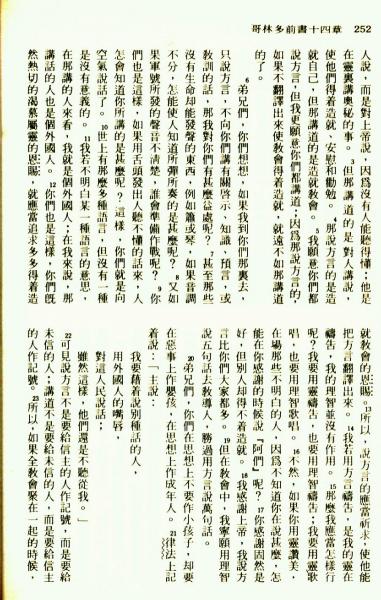 哥林多前書十四章 252
人說，而是對上帝說，因爲沒有人能聽得懂；他是
在靈裏講奧秘的事。3但那講道的是對人講說，
使他們得着造就、安慰和勸勉。4那說方言的是造
就自己，但那講道的是造就教會。5我願意你們都
說方言，但我更願意你們都講道；因爲那說方言的，
如果不翻譯出來使教會得着造就，就遠不如那講道
的了。
6弟兄們，你們想想，如果我到你們那裏去，
只說方言，不向你們講有關啓示、知識、預言，或
教訓的話，那我對你們有甚麼益處呢？7甚至那些
沒有生命却能發聲的東西，例如簫或琴，如果音調
不分，怎能使人知道所彈所奏的是甚麼呢？8又如
果軍號所發的聲音不清楚，誰會準備作戰呢？9你
們也是這樣，如果用舌頭發出人聽不懂的話來，人
怎會知道你所講的是甚麼呢？這樣，你們就是向
空氣說話了。10世上有那麼多種語言，但沒有一種
是沒有意義的。11我若不明白某一種語言的意思，
在那講的人來看，我就是個外國人；在我來說，那
講話的人也是個外國人。12你們也是這樣，你們既
然熱切的渴慕屬靈的恩賜，就應當追求多多得着造
就教會的恩賜。13所以，說方言的應當祈求，使他能
把方言翻譯出來。14我若用方言禱告，是我的靈在
禱告，我的理智並沒有作用。15那麼我應當怎樣行
呢？我要用靈禱告，也要用理智禱告；我要用靈歌
唱，也要用理智歌唱。16不然，如果你用靈讚美，
在場那些不明白的人，因爲不知道你在說甚麼，怎
能在你感謝的時候說『阿們』呢？17你感謝固然是
好，但別人却得不着造就。18我感謝上帝，我說方
言比你們大家都多。19但在教會中，我寧願用理智
說五句話去教導人，勝過用方言說萬句話。
20弟兄們，你們在思想上不要作小孩子，却要
在惡事上作嬰孩，在思想上作成年人。21律法上記
着說：「主說：
我要藉着說別種話的人，
用外國人的嘴唇，
對這人民說話；
雖然這樣，他們還是不聽從我。」
22可見說方言不是要給信主的人作記號，而是要給
未信的人；講道不是要給未信的人，而是要給信主
的人作記號。23所以，如果全教會聚在一起的時候，